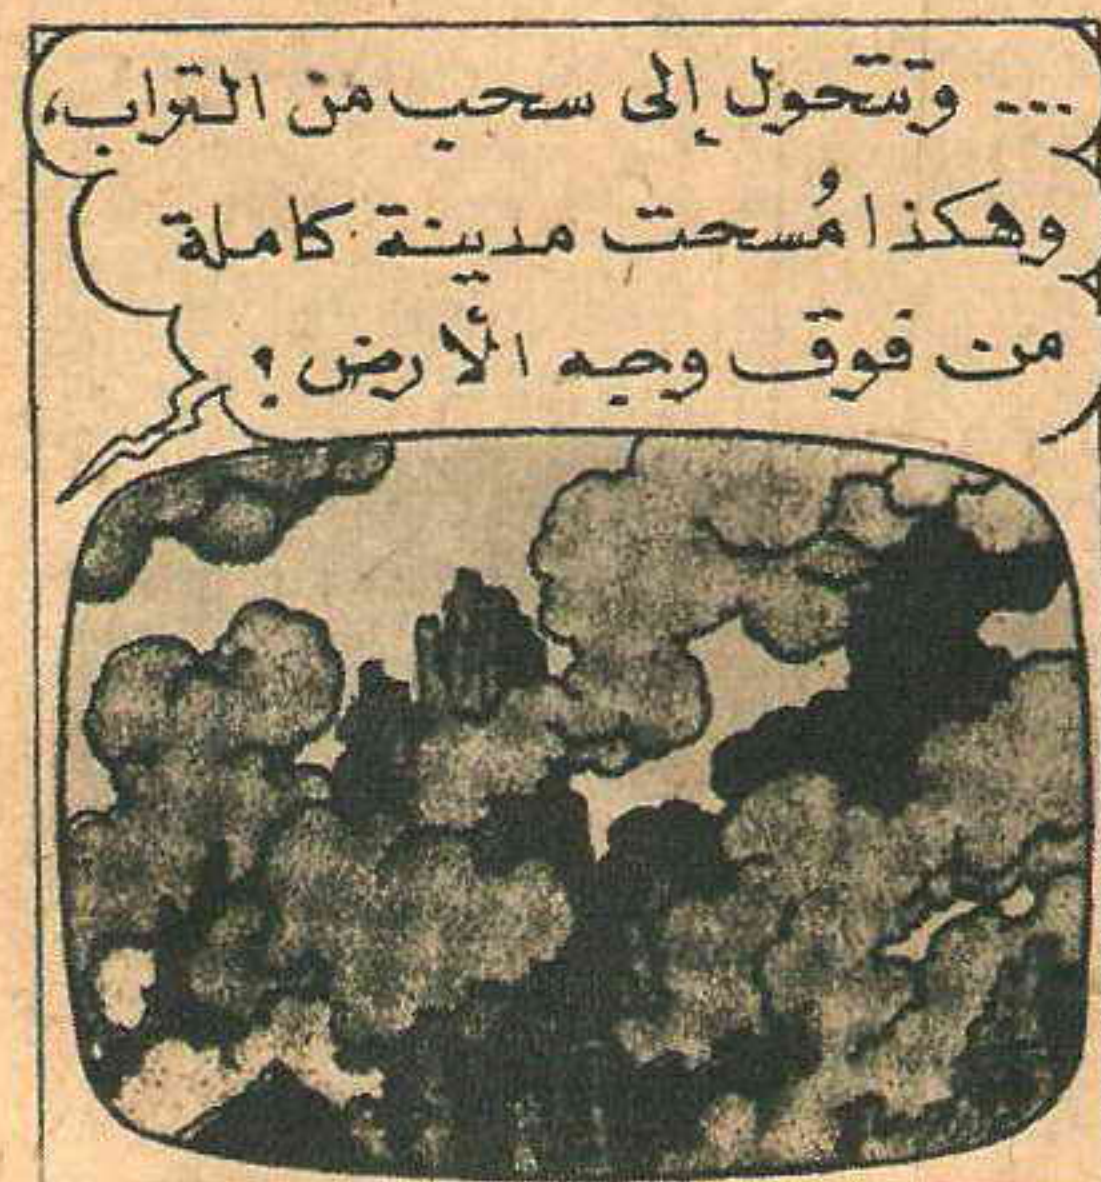 ... وتتحول إلى سحب من التراب،
وهكذا مُسحت مدينة كاملة
من فوق وجه الأرض!